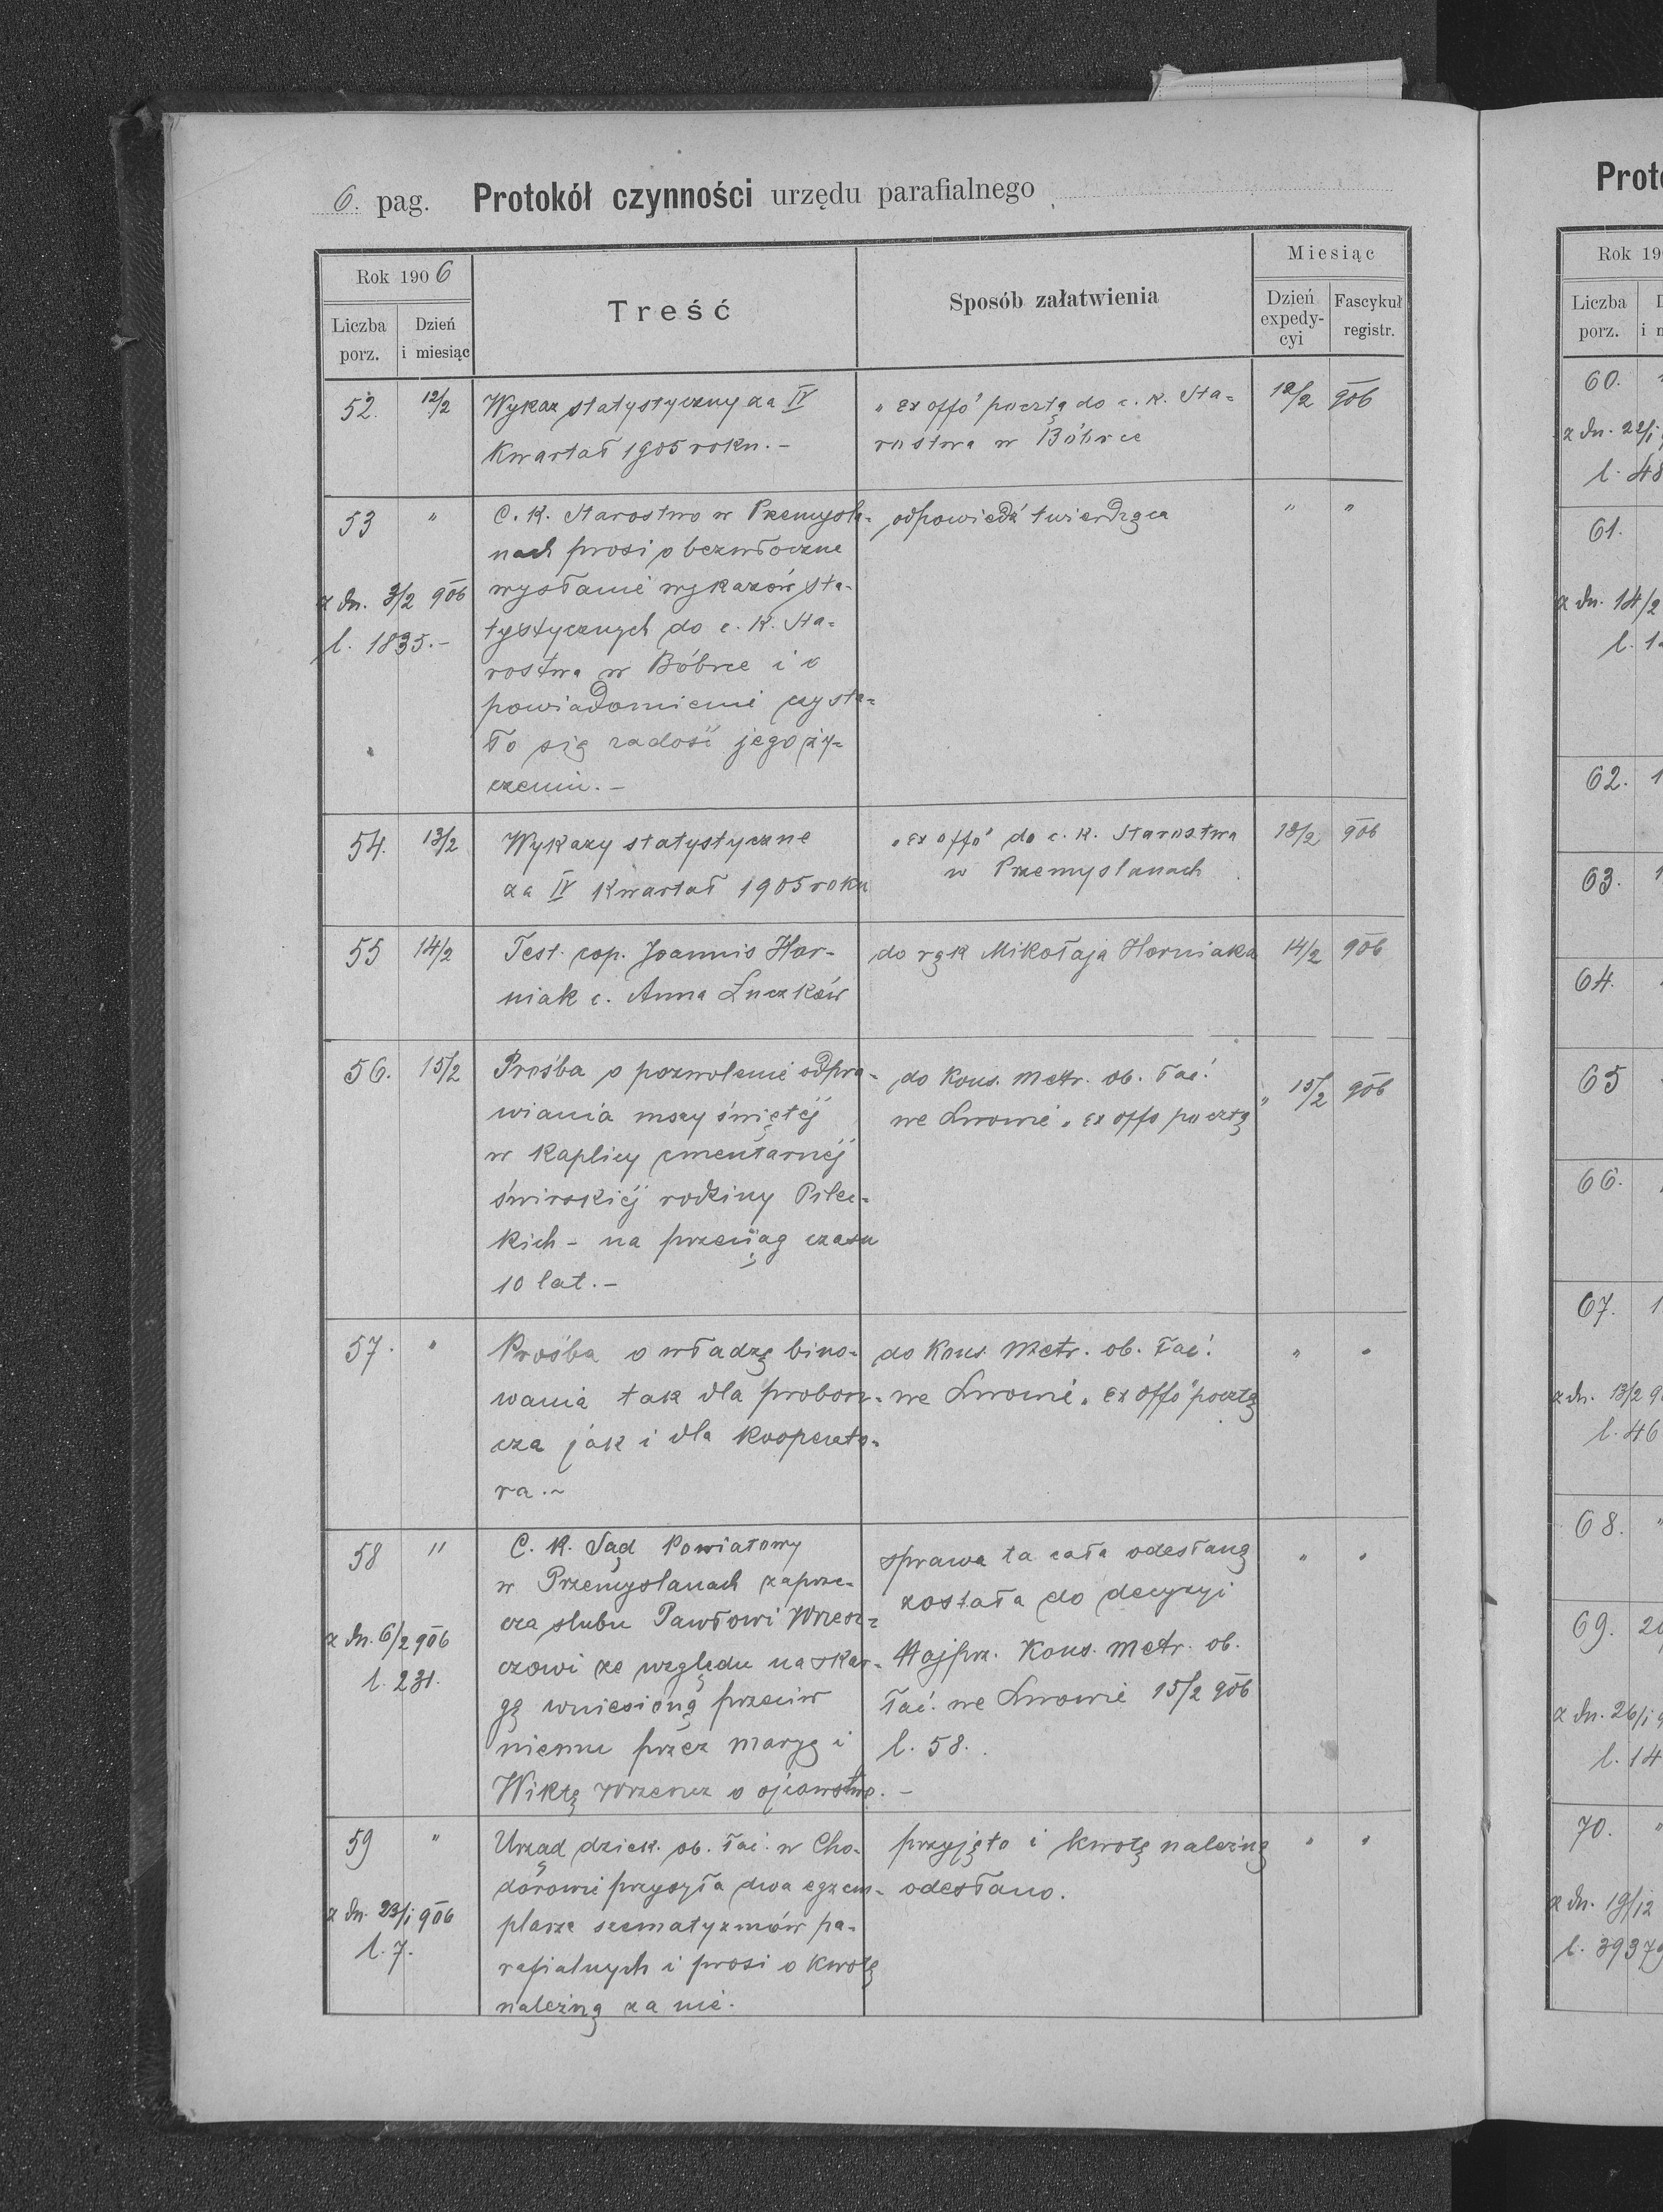 6. pag. Protokół czynności urzędu parafialnego
Rok 1906
Liczba porz.
Dzień i miesiąc
Treść
Sposób załatwienia
Miesiąc
Dzień expedy-
cyi
Fascykuł
registr.
52. 12/2 Wykaz statystyczny za IV „ex offo" pocztą do c. k. Sta= 12/2 906
Kwartał 1905 roku.- rostwa w Bóbrce
53 " C. K. Starostwo w Przemyśla- odpowiedź twierdząca " "
nach prosi o bezwłoczne
z dn. 3/2 906 wysłanie wykazów sta-
l. 1835.- tystycznych do c. K. Sta-
rostwa w Bóbrce i o
powiadomienie czy sta=
ło się zadość jego ży=
czeniu.-
54. 13/2 Wykazy statystyczne „ex offo" do c. k. Starostwa 13/2 906
za IV Kwartał 1905 roku w Przemyslanach
55 14/2 Test. cop. Joannis Hor- do rąk Mikołaja Horniaka 14/2 906
niak c. Anna Luczków
56. 15/2 Prośba o pozwolenie odpra- do Kons. Metr. ob. łać. 15/2 906
wiania mszy świętéj we Lwowie „ex offo pocztą"
w Kaplicy cmentarnéj
świrskiéj rodziny Pilec-
kich - na przeciąg czasu
10 lat.-
57. " Prośba o władzę bino- do Kons. Metr. ob. łać. " "
wania tak dla probosz- we Lwowie „ex offo" pocztą
cza jak i dla Kooperato-
ra.~
58 " C. K. Sąd Powiatowy sprawa ta cała odesłaną " "
w Przemyslanach zaprze- została do decyzyi
cza slubu Pawłowi Wrzesz= Najprz. Kons. Metr. ob.
z dn. 6/2 906 czowi ze względu na skar- łać. we Lwowie 15/2 906
l. 231. gę wniesioną przeciw l. 58.
niemu przez Maryę i
Wiktę o ojcowstwo. -
59 " Urząd dziek. ob. łać. w Cho- przyjęto i kwotę należną " "
dorowie przysyła dwa egzem- odesłano.
z dn. 23/1 906 plarze szematyzmów pa-
l. 7. rafialnych i prosi o kwotę
należną za nie.
Proto
Rok 19
Liczba
porz.
60.
z dn. 22/1
l. 48
61.
z dn. 14/2
l. 1
62. 1
63. 1
64.
65
66.
67. 1
z dn. 13/2 9
l. 46
68. "
69. 2
z dn. 26/1 9
l. 14
70. "
z dn. 19/12
l. 3937